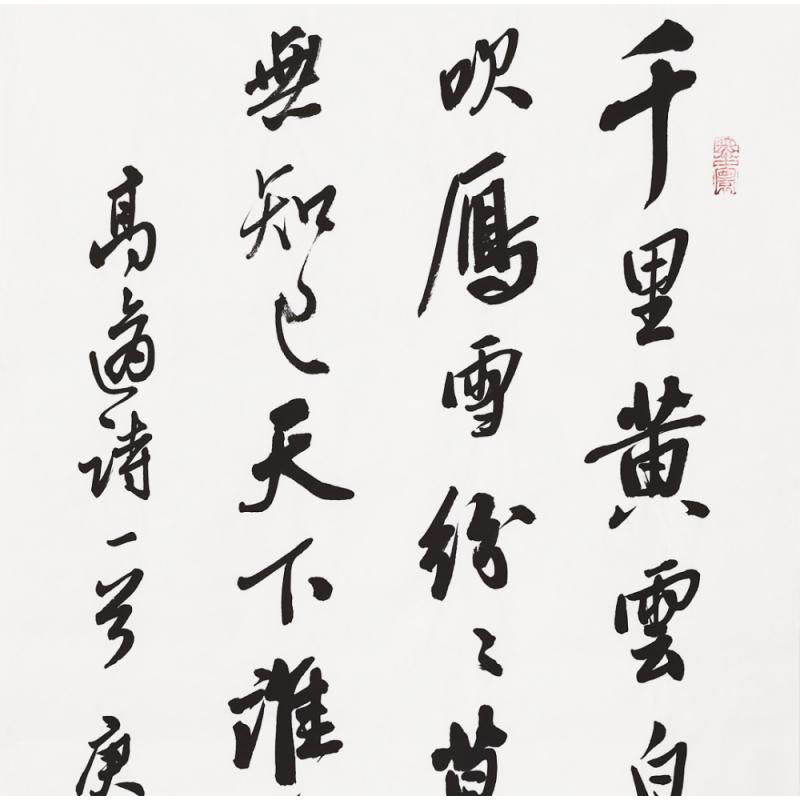 千里黄雲白
吹鴈雪紛々莫
無知己天下誰
高適詩一首庚